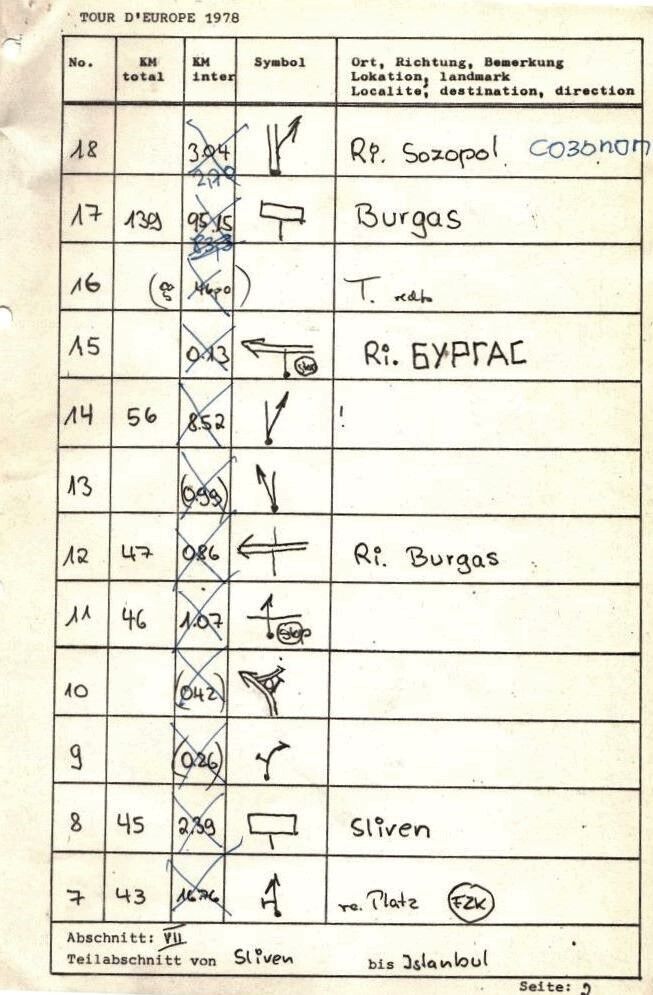 TOUR D'EUROPE 1978
No. KM total KM inter Symbol Ort, Richtung, Bemerkung
Lokation, landmark
Localite, destination, direction
18 3.04 Ri. Sozopol созопол
2,70
17 139 95.15 Burgas
83,3
16 T.
15 0.13 Stop Ri. БУРГАС
14 56 8.52 !
13 (0.99)
12 47 0.86 Ri. Burgas
11 46 1.07 Stop
10 (0.42)
9 (0.26)
8 45 2.39 Sliven
7 43 16.76 re. Platz FZK
Abschnitt: VII
Teilabschnitt von Sliven bis Istanbul
Seite: 2